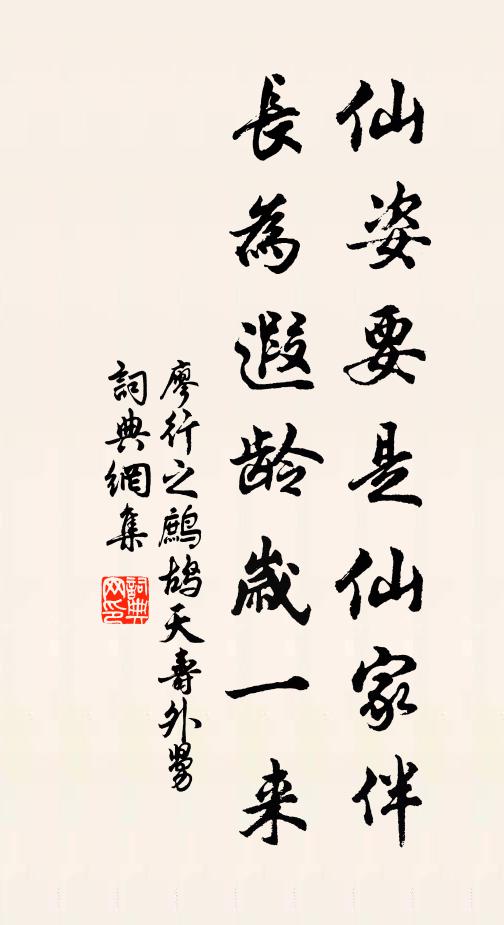 仙姿要是仙家伴
長為遐龄歲一来
廖行之鷓鴣天壽外舅
詞典網集
詞典网印